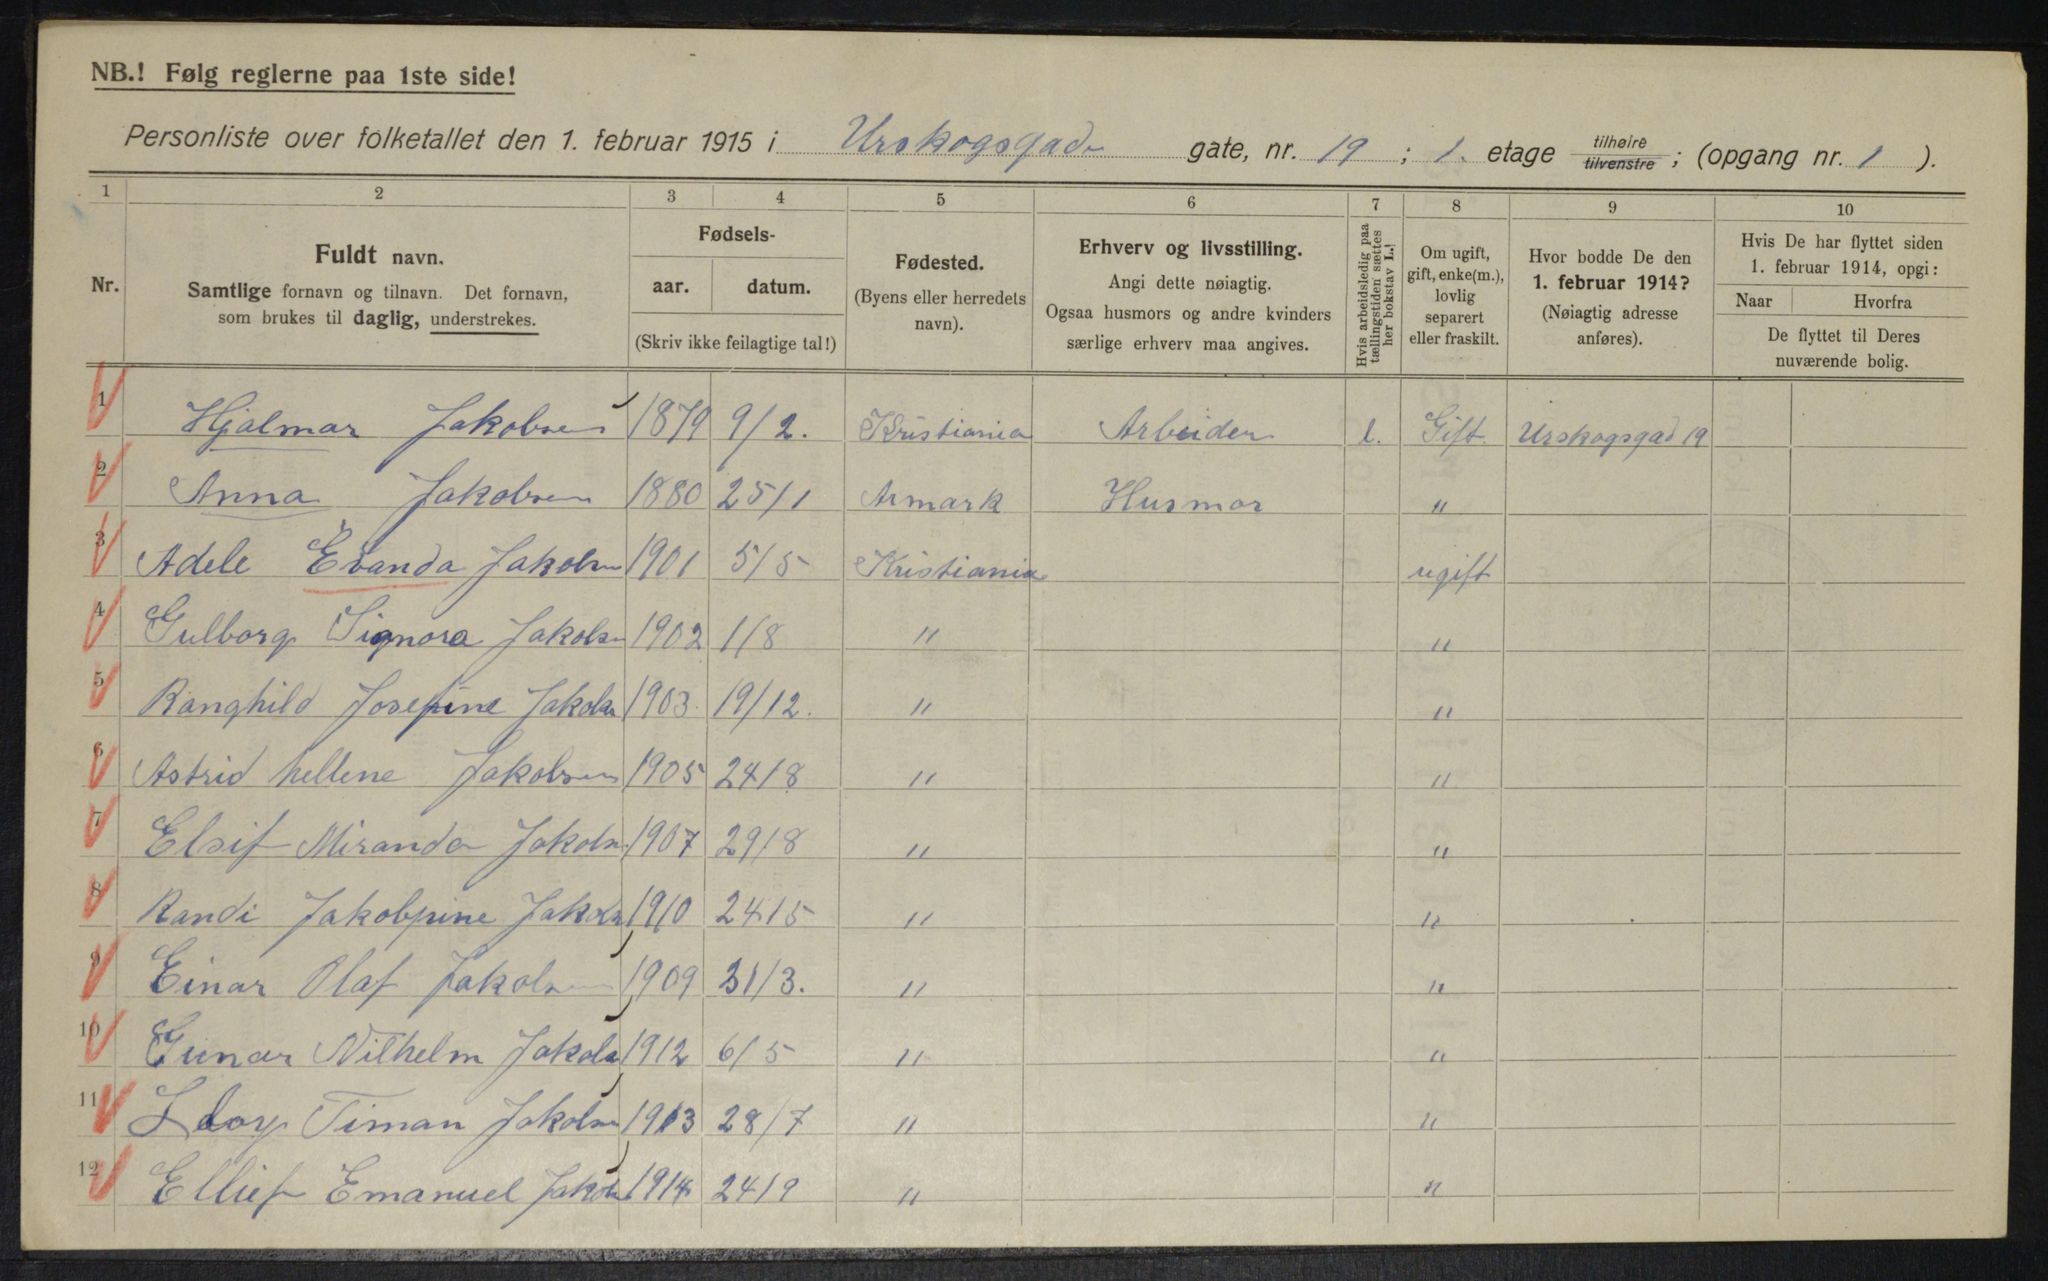 NB.! Følg reglerne paa 1ste side!
Personliste over folketallet den 1. februar 1915 i Urskogsgade gate, nr. 19 ; 1. etage tilhøire tilvenstre ; (opgang nr. 1 ).
1 2 3 4 5 6 7 8 9 10
Nr.
Fuldt navn.
Samtlige fornavn og tilnavn. Det fornavn,
som brukes til daglig, understrekes.
Fødsels-
aar. datum.
(Skriv ikke feilagtige tal!)
Fødested.
(Byens eller herredets
navn).
Erhverv og livsstilling.
Angi dette nøiagtig.
Ogsaa husmors og andre kvinders
særlige erhverv maa angives.
Hvis arbeidsledig paa
tællingstiden sættes
her bokstav L.!
Om ugift,
gift, enke(m.),
lovlig
separert
eller fraskilt.
Hvor bodde De den
1. februar 1914?
(Nøiagtig adresse
anføres).
Hvis De har flyttet siden
1. februar 1914, opgi:
Naar Hvorfra
De flyttet til Deres
nuværende bolig.
1 Hjalmar Jakobsen 1879 9/2. Kristiania Arbeider l. Gift. Urskogsgad 19
2 Anna Jakobsen 1880 25/1 Armark Husmor "
3 Adele Evanda Jakobsn 1901 5/5 Kristiania ugift
4 Gulborg Signora Jakobsn 1902 1/8 " "
5 Ranghild Josefine Jakobsn 1903. 19/12. " "
6 Astrid hellene Jakobsen 1905 24/8 " "
7 Elsif Miranda Jakobsn 1907 29/8 " "
8 Randi Jakobpine 1910 24/5 " "
9 Einar Olaf Jakobsen 1909 31/3. " "
10 Gunar Vilhelm Jakobsn 1912 6/5 " "
11 Timan Jakobsn 1913 28/7 " "
12 Ellief Emanuel Jakobsn 1914 24/9 " "